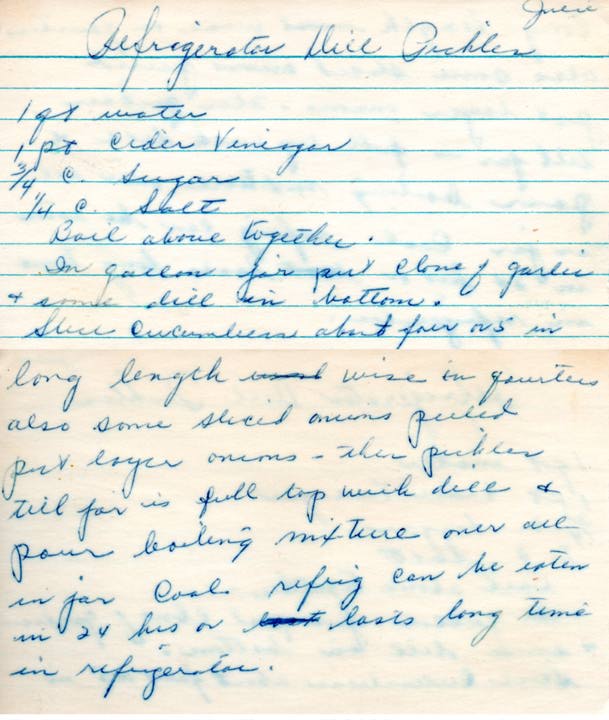 June
Refrigerator Dill Pickles
1 qt water
1 pt Cider Vinegar
3/4 c. Sugar
1/4 c. Salt
Boil above together.
In gallon jar put clove of garlic
& some dill in bottom.
Slice cucumbers about four or 5 in
long length wise in quarters
also some sliced onions peeled
put layer onions - then pickles
till jar is full top with dill &
pour boiling mixture over all
in jar Cool. refrig can be eaten
in 24 hrs or lasts long time
in refrigerator.